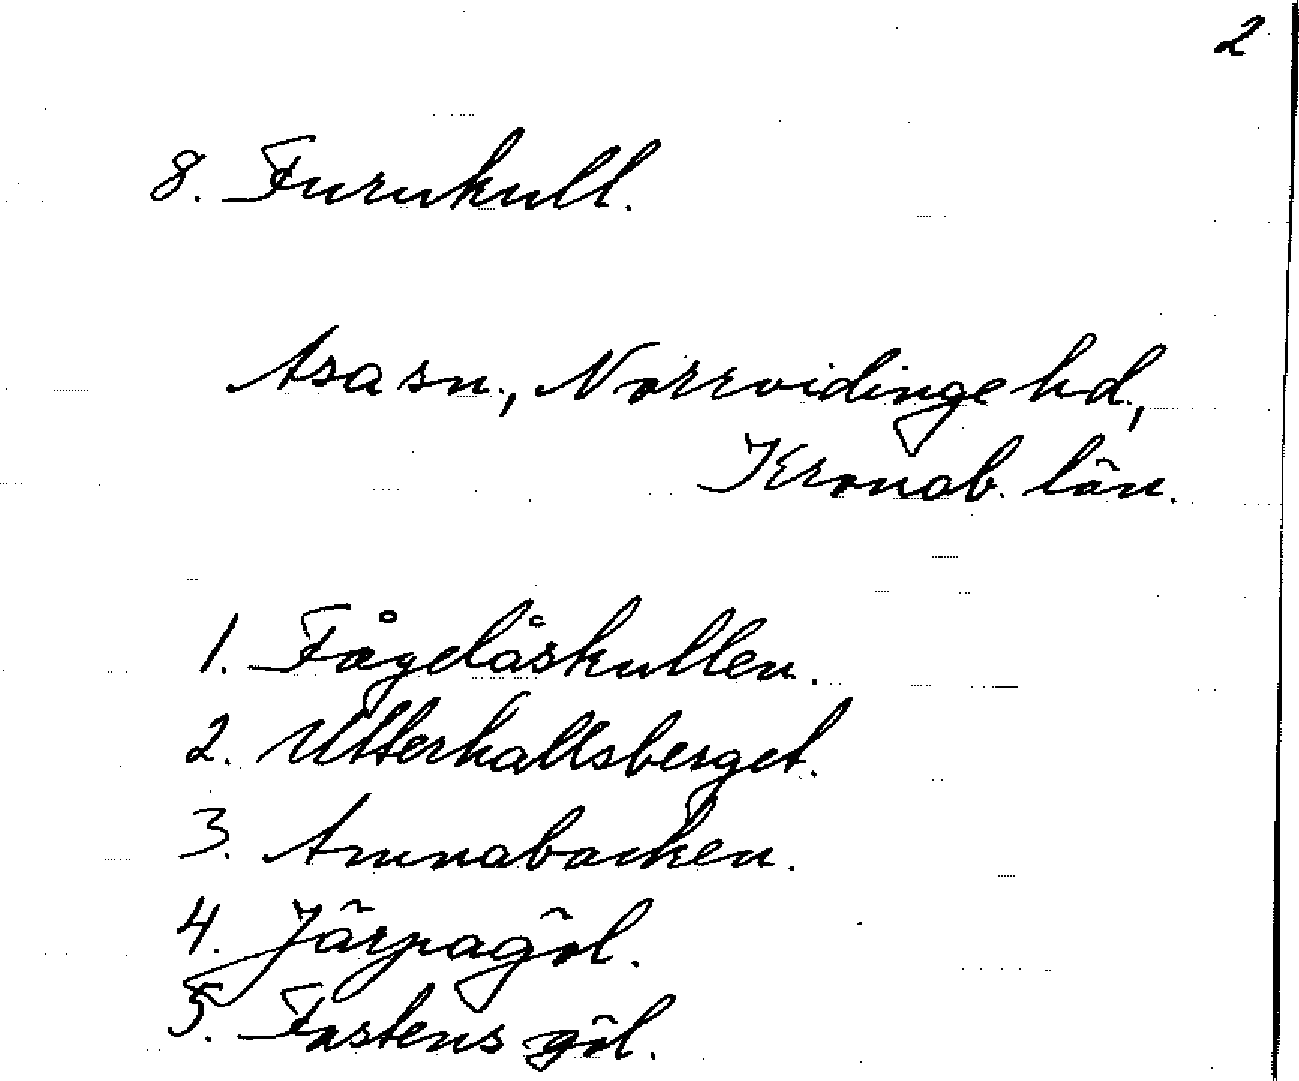 2
8. Furukull.
Asa sn., Norrvidinge hd.,
Kronob. län.
1. Fågelåskullen.
2. Utterhallsberget.
3. Annabacken.
4. Järpagöl.
5. Fastens göl.